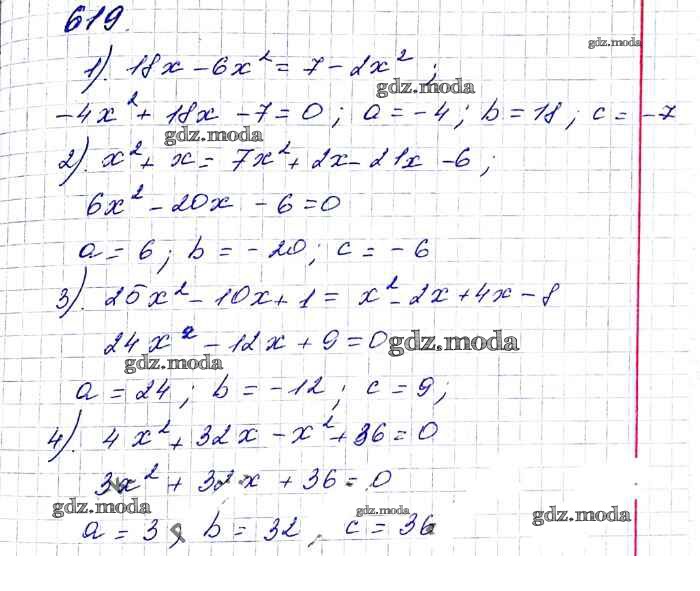 619.
gdz.moda
1). 18x - 6x² = 7 - 2x² ;
gdz.moda
-4x² + 18x - 7 = 0 ; a = -4 ; b = 18 ; c = -7
gdz.moda
2). x² + x = 7x² + 2x - 21x - 6 ;
6x² - 20x - 6 = 0
a = 6 ; b = -20 ; c = -6
3). 25x² - 10x + 1 = x² - 2x + 4x - 8
24x² - 12x + 9 = 0 gdz.moda
gdz.moda
a = 24 ; b = -12 ; c = 9 ;
4). 4x² + 32x - x² + 36 = 0
3x² + 32x + 36 = 0
gdz.moda gdz.moda gdz.moda
a = 3 ; b = 32 , c = 36